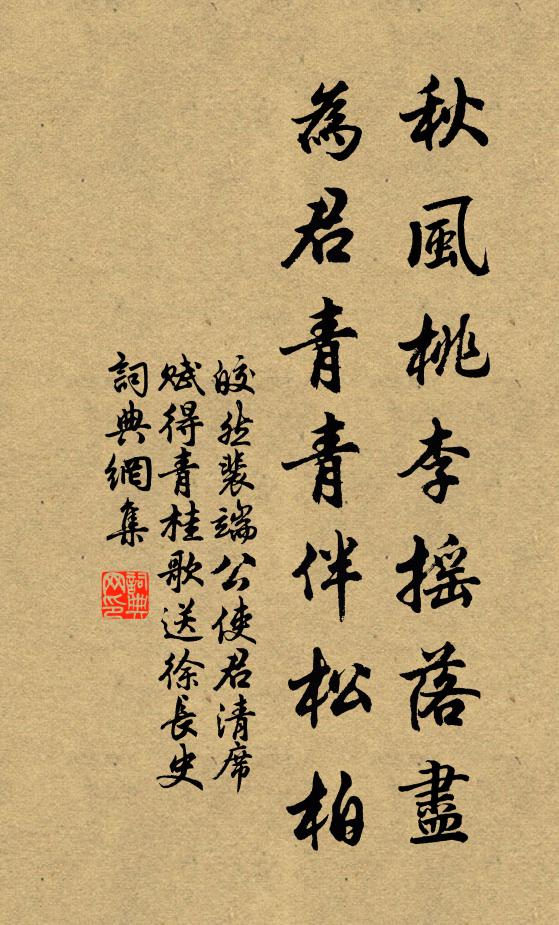 秋風桃李摇落盡
為君青青伴松柏
皎然裴端公使君清席
赋得青桂歌送徐長史
詞典網集
詞典网印